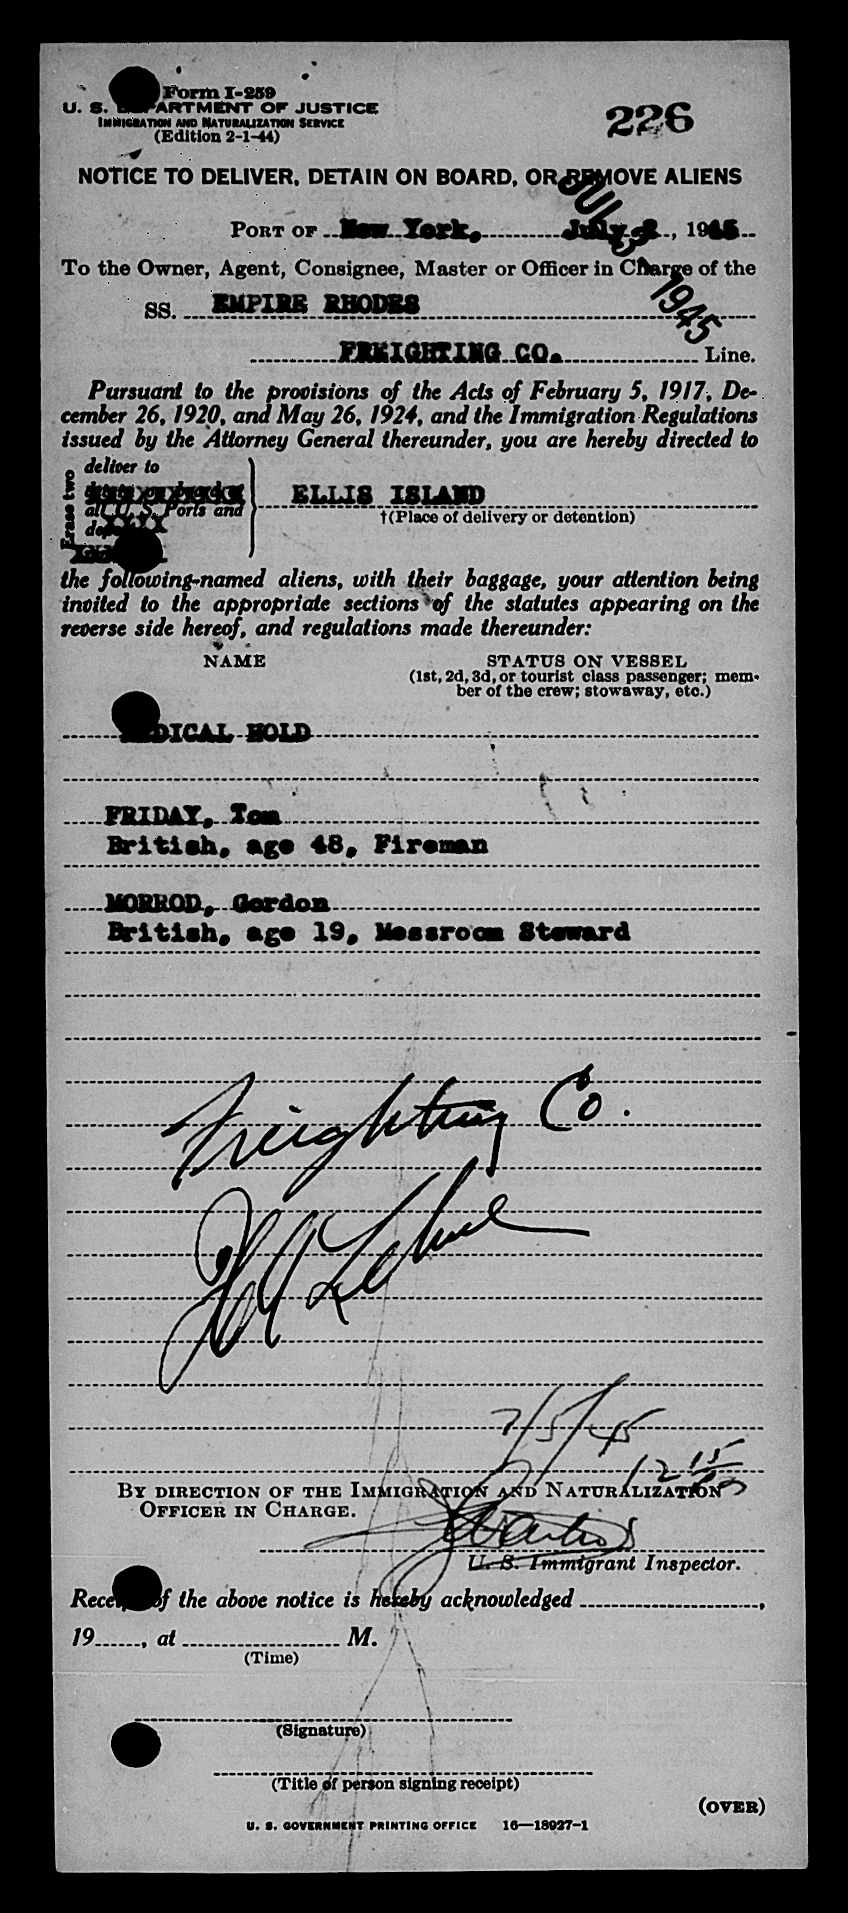 Form I-259
U. S. DEPARTMENT OF JUSTICE
IMMIGRATION AND NATURALIZATION SERVICE
(Edition 2-1-44)
226
NOTICE TO DELIVER, DETAIN ON BOARD, OR REMOVE ALIENS
JUL 3 - 1945
PORT OF New York, July 2, 1945
To the Owner, Agent, Consignee, Master or Officer in Charge of the
SS. EMPIRE RHODES
FREIGHTING CO. Line.
Pursuant to the provisions of the Acts of February 5, 1917, De-
cember 26, 1920, and May 26, 1924, and the Immigration Regulations
issued by the Attorney General thereunder, you are hereby directed to
Erase two
deliver to
all U. S. Ports and
ELLIS ISLAND
†(Place of delivery or detention)
the following-named aliens, with their baggage, your attention being
invited to the appropriate sections of the statutes appearing on the
reverse side hereof, and regulations made thereunder:
NAME STATUS ON VESSEL
(1st, 2d, 3d, or tourist class passenger; mem-
ber of the crew; stowaway, etc.)
MEDICAL HOLD
FRIDAY, Tom
British, age 48, Fireman
MORROD, Gordon
British, age 19, Messroom Steward
Freighting Co.
7/5/45
12 15
BY DIRECTION OF THE IMMIGRATION AND NATURALIZATION
OFFICER IN CHARGE.
U. S. Immigrant Inspector.
Receipt of the above notice is hereby acknowledged ,
19 , at M.
(Time)
(Signature)
(Title of person signing receipt)
(OVER)
U. S. GOVERNMENT PRINTING OFFICE 16—18927-1